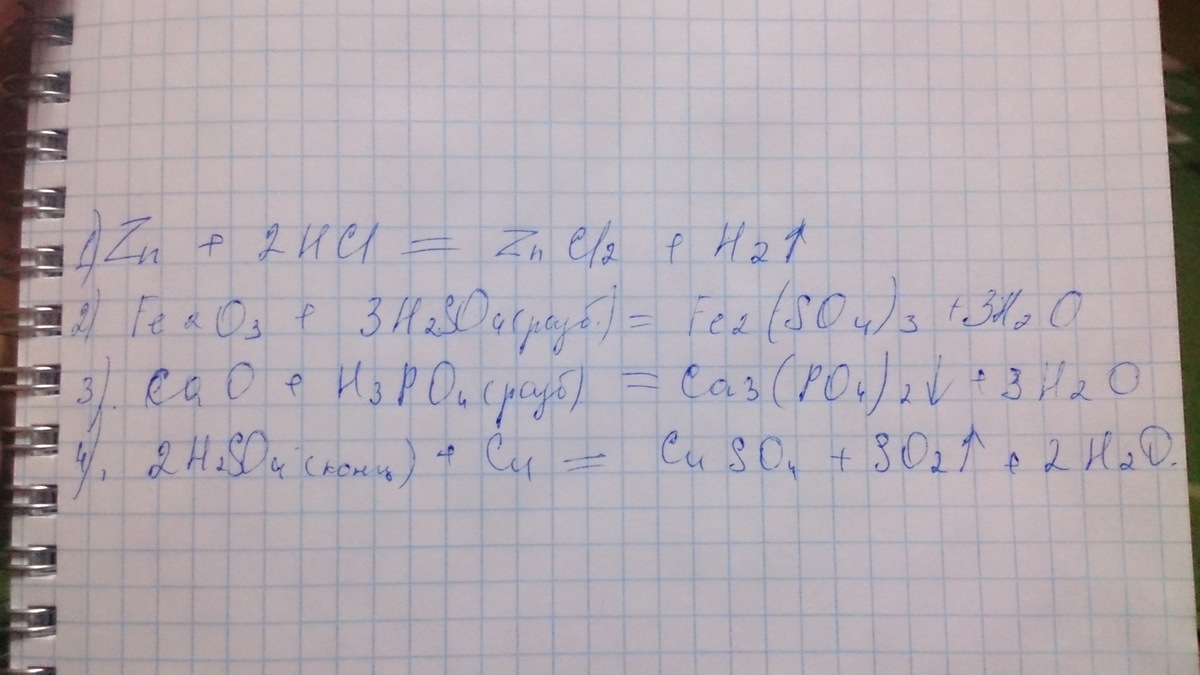 1) Zn + 2HCl = ZnCl2 + H2↑
2) Fe2O3 + 3H2SO4 (разб.) = Fe2(SO4)3 + 3H2O
3). CaO + H3PO4 (разб) = Ca3(PO4)2↓ + 3H2O
4). 2H2SO4 (конц) + Cu = CuSO4 + SO2↑ + 2H2O.